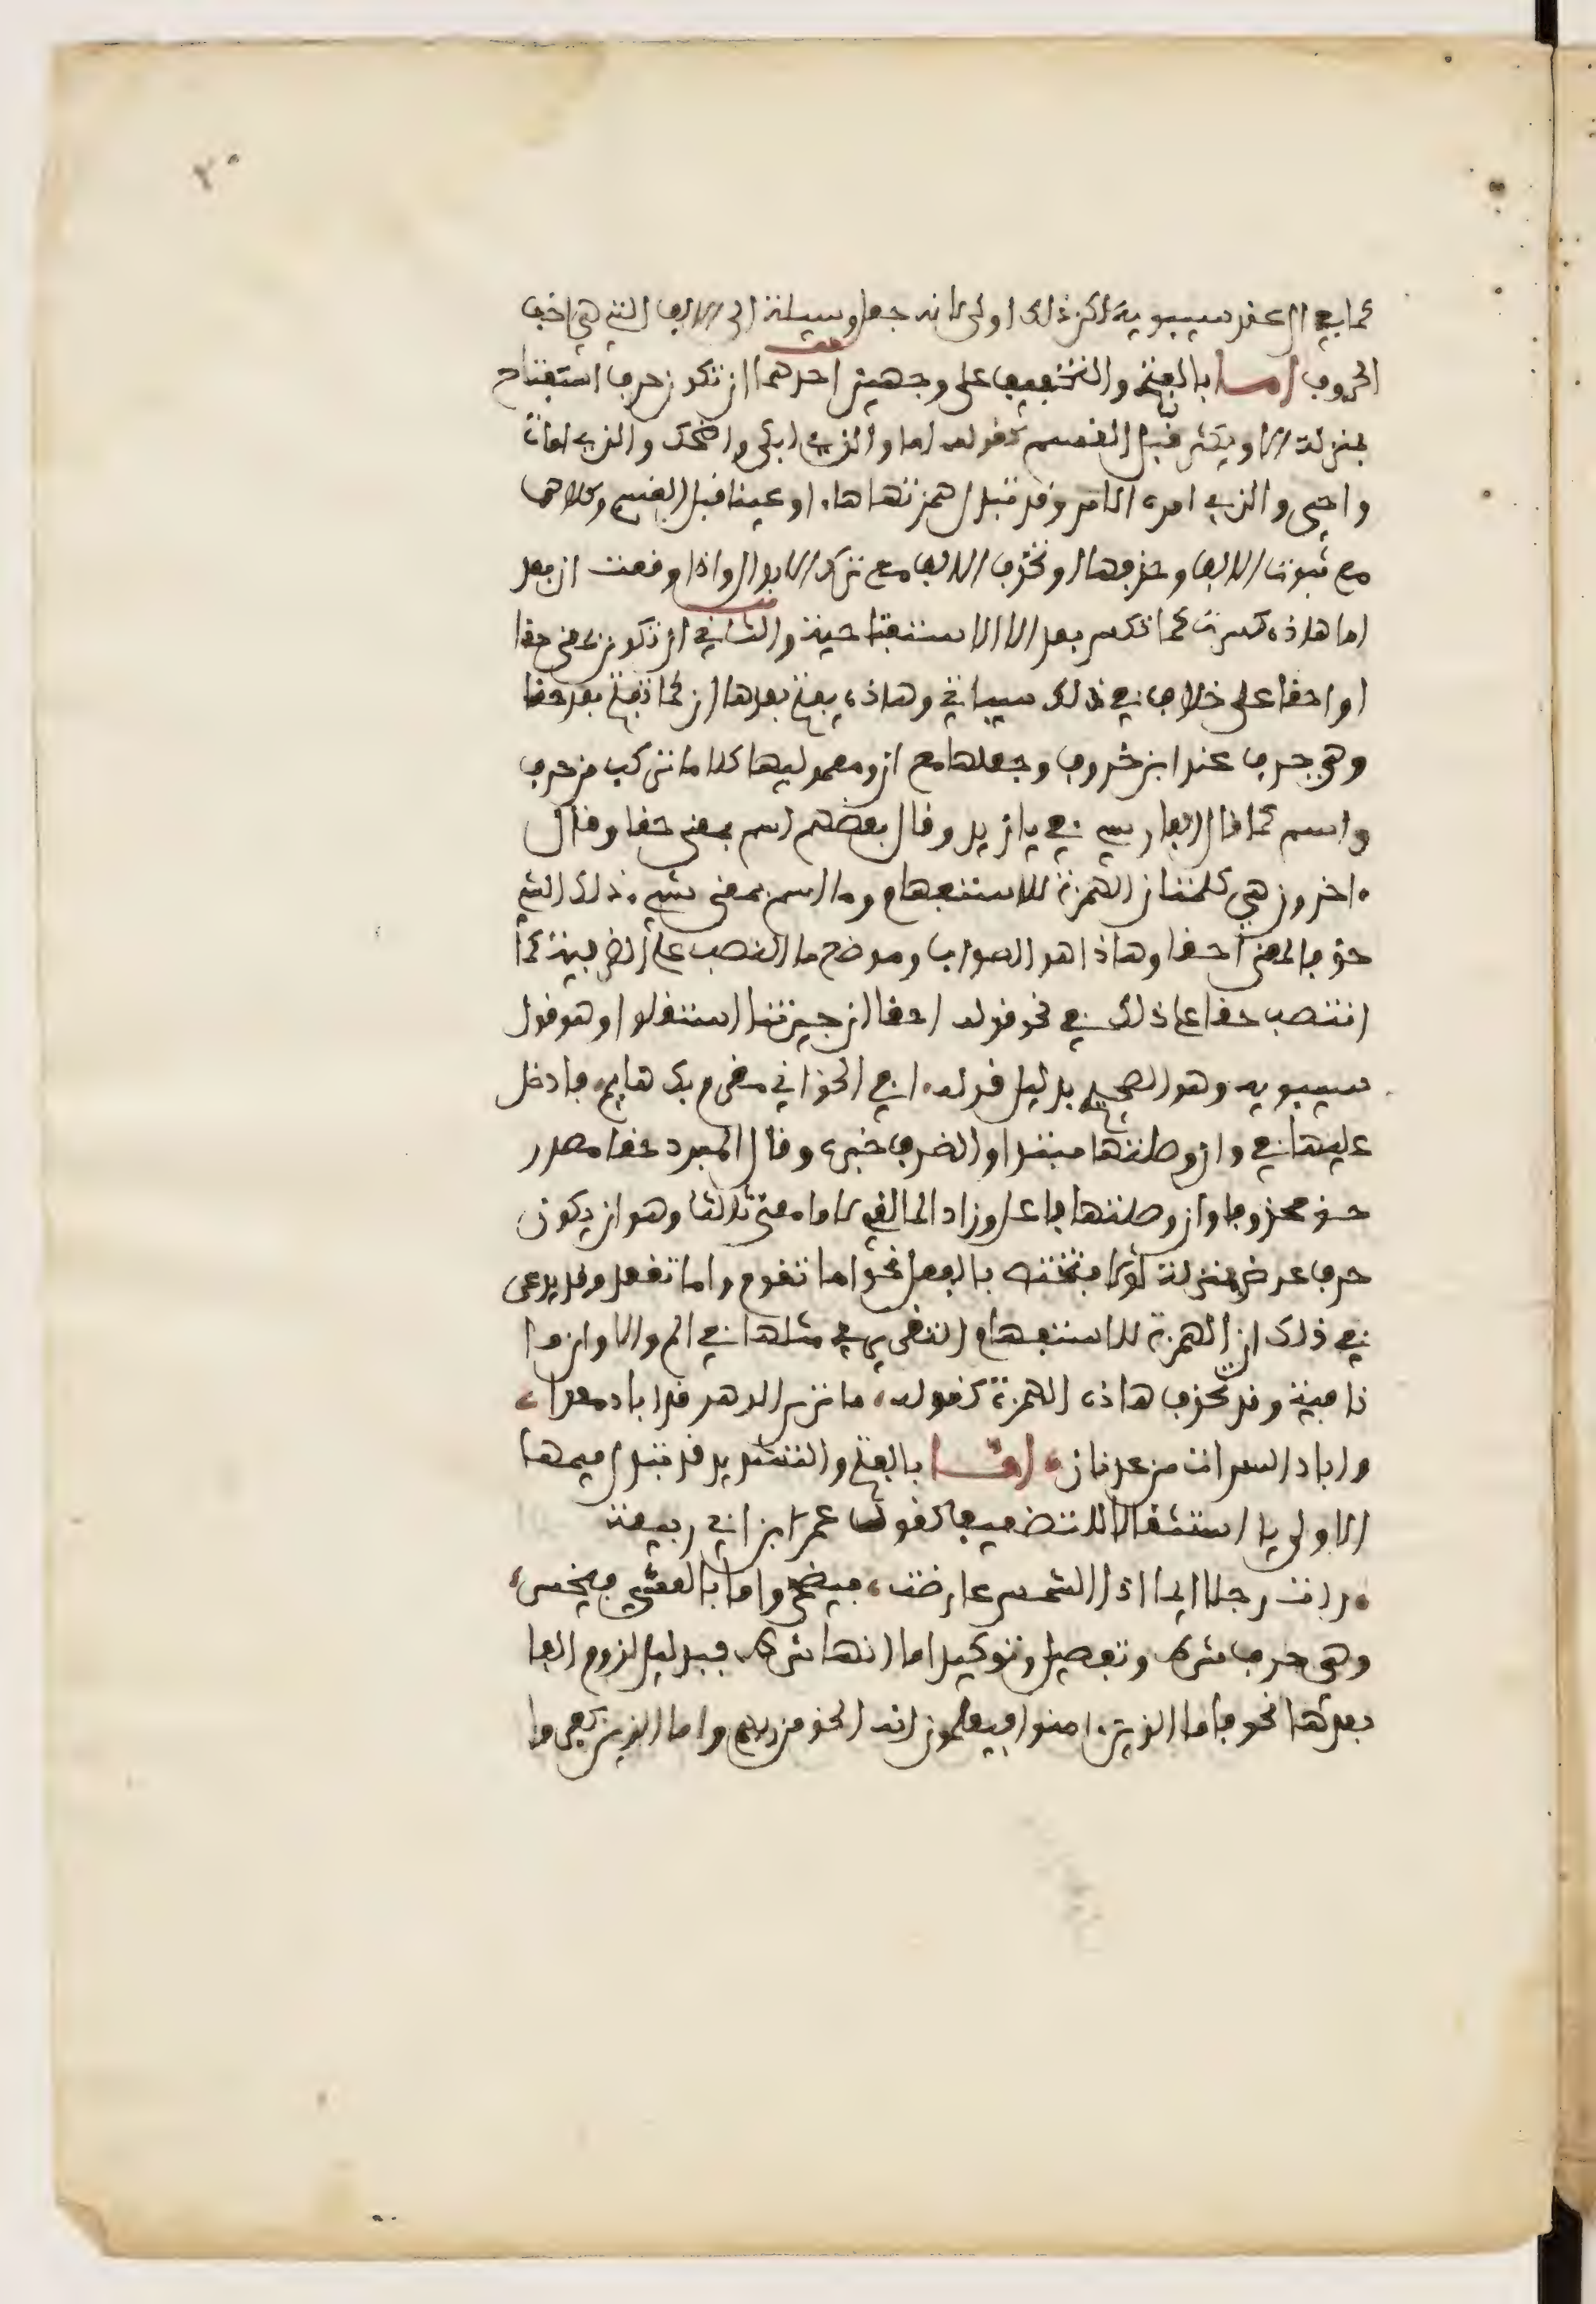 ٢٠
كما في ال عند سيبويه لاكن ذلك اولى لانه جعل وسيلة الى الالف التي هي اخف
الحروف اما بالفتح والتخفيف على وجهين احدهما ان تكون حرف استفتاح
بمنزلة الا ويكثر قبل القسم كقوله اما والذي ابكى واضحك والذي امات
واحيى والذي امره الامر وقد تبدل همزتها هاء او عينا قبل القسم وكلاهما
مع ثبوت الالف وحذفها او تحذف الالف مع ترك الابدال واذا وقعت ان بعد
اما هاذه كسرت كما تكسر بعد الا الاستفتاحية والثاني ان تكون بمعنى حقا
او احقا على خلاف في ذلك سياتي وهاذه يفتح بعدها ان كما تفتح بعد حقا
وهي حرف عند ابن خروف وجعلها مع ان ومعموليها كلاما تركب من حرف
واسم كما قال الفارسي في يا زيد وقال بعضهم اسم بمعنى حقا وقال
ءاخرون هي كلمتان الهمزة للاستفهام وما اسم بمعنى شيء ذلك الشيء
حق فالمعنى احقا وهاذا هو الصواب وموضع ما النصب على الظرفية كما
انتصب حقا على ذلك في نحو قوله احقا ان جيرتنا استقلوا وهو قول
سيبويه وهو الصحيح بدليل قوله افي الحق اني مغرم بك هايم فادخل
عليها في وان وصلتها مبتدا والظرف خبره وقال المبرد حقا مصدر
حق محذوفا وان وصلتها فاعل وزاد المالقي لاما معنى ثالثا وهو ان يكون
حرف عرض بمنزلة لولا فتختص بالفعل نحو اما تقوم واما تقعد وقد يدعى
في ذلك ان الهمزة للاستفهام التقريري مثلها في الم والا وان ما
نافية وقد تحذف هاذه الهمزة كقوله ما ترى الدهر قد اباد معدا
واباد السراة من عدنان اما بالفتح والتشديد قد تبدل ميمها
الاولى يا استثقالا للتضعيف كقول عمر ابن ابي ربيعة
رات رجلا ايما اذا الشمس عارضت فيضحى واما بالعشي فيخصر
وهي حرف شرط وتفصيل وتوكيد اما انها شرط فبدليل لزوم الفا
بعدها نحو فاما الذين ءامنوا فيعلمون انه الحق من ربهم واما الذين كفروا